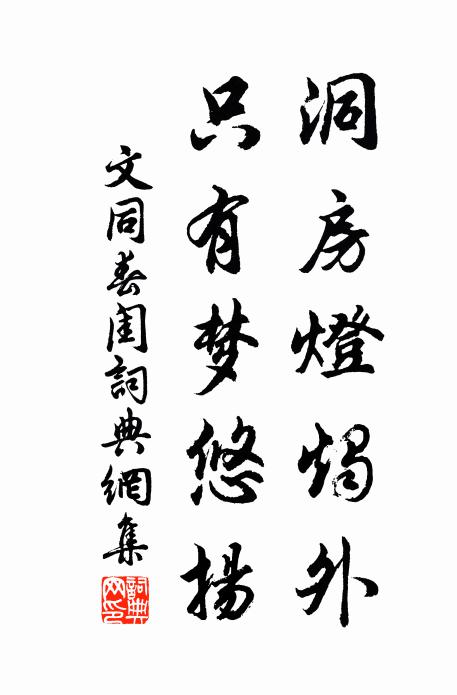 洞房燈燭外
只有梦悠揚
文同春閨詞典網集
詞典网印